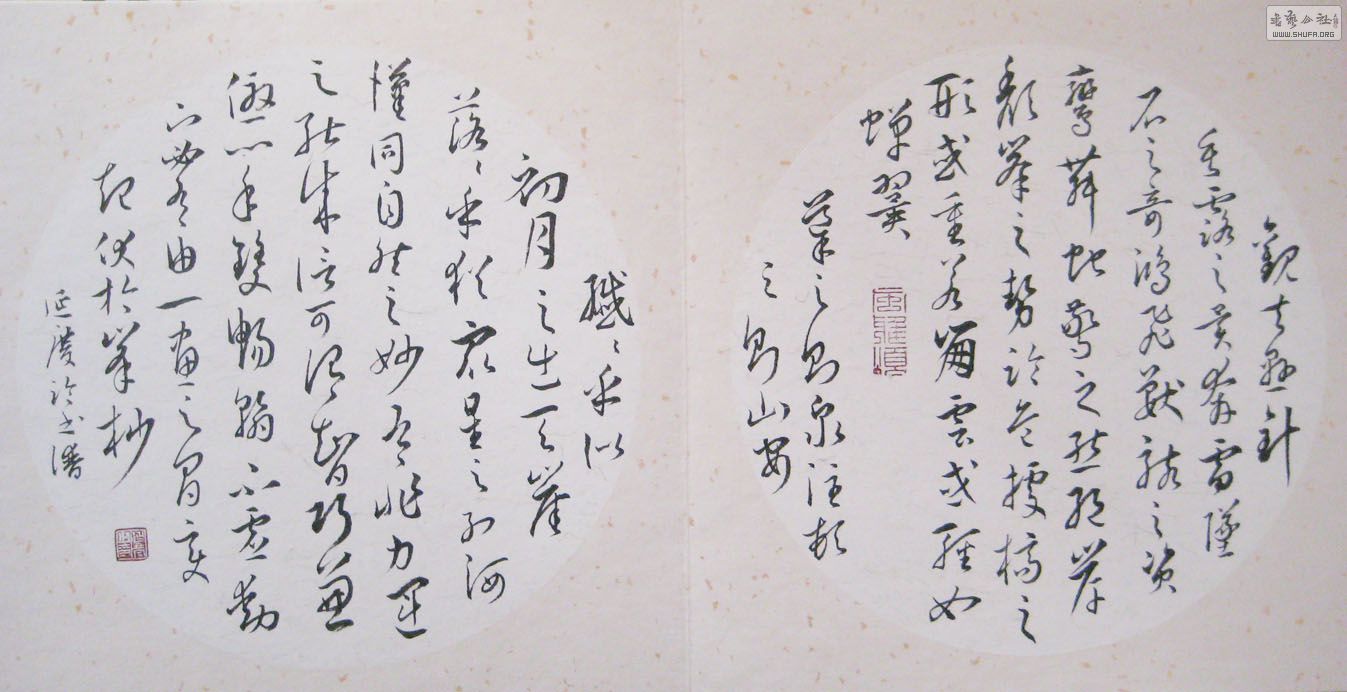 觀夫懸針
垂露之異奔雷墜
石之奇鴻飛獸駭之資
鸞舞蛇驚之態絕岸
頹峯之勢臨危據槁之
形或重若崩雲或輕如
蟬翼
導之則泉注頓
之則山安
纖〻乎似
初月之出天崖
落〻乎猶眾星之列河
漢同自然之妙有非力運
之能成信可謂智巧兼
優心手雙暢翰不虛動
下必有由一畫之間變
起伏於峯杪
臨書譜
书艺公社
WWW.SHUFA.ORG